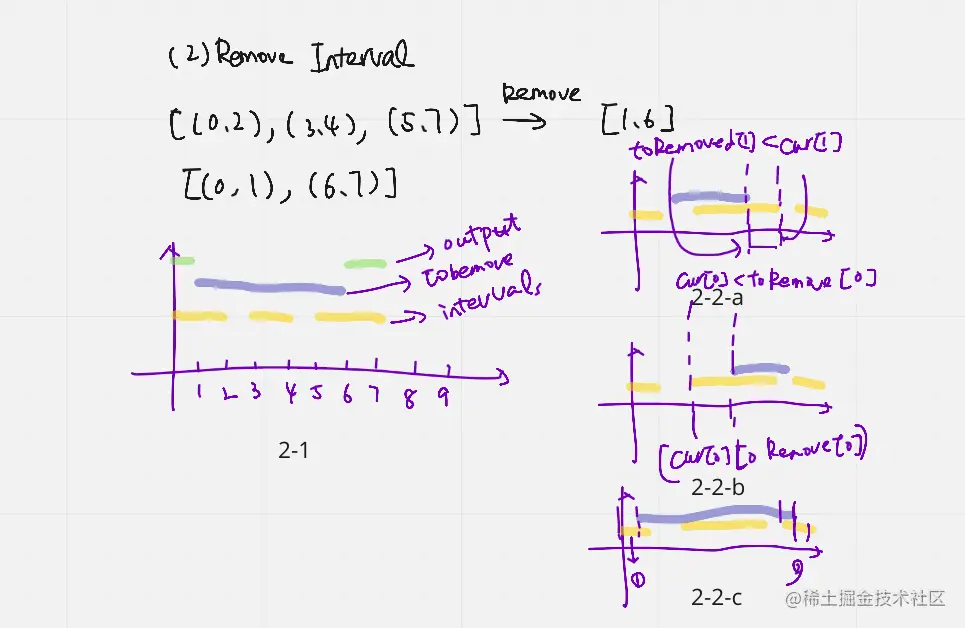 (2) Remove Interval
[(0.2), (3.4), (5.7)] Remove [1.6]
[(0,1), (6.7)]
toRemoved[1] < cur[1]
output
intervals
1 2 3 4 5 6 7 8 9
2-1
cur[0] < toRemove [0]
2-2-a
(cur[0] to Remove[0])
2-2-b
①
②
2-2-c
@稀土掘金技术社区